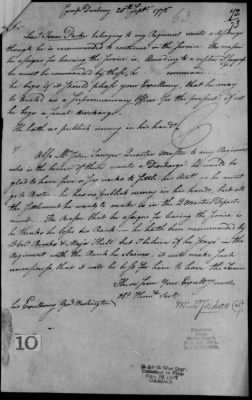 Camp Danbury 26th Sept. 1778
Lieut Isaac Dealy belonging to my Regiment wants a discharge
though he is recommended to continue in the Service. The reason
he assigns for leaving the Service is, According to a
he must be commanded by those, he command
he begs if it should please your Excellency, that he may
be treated as a supernumerary Officer for the present, if not
he begs a final discharge.
He hath no publick money in his hands
Also Mr John Sawyer Quarter Master to my Regiment
who is the bearer of these wants a Discharge he would be
glad to have for a few weeks to settle his Acct as he must
go to Boston he has no publick money in his hands, but all
the Settlement he wants to make is in the Q Masters Depart
ment. The reason that he assigns for leaving the Service is
he thinks he loses his Rank — he hath been recommended by
Colo Brooks & Major Hull but I believe if he stays in the
Regiment with the Rank he claims, it will make such
uneasiness that it will be best for him to leave the Service
I have Your Excelly most
Hum. Servt
His Excellency Genl Washington
10